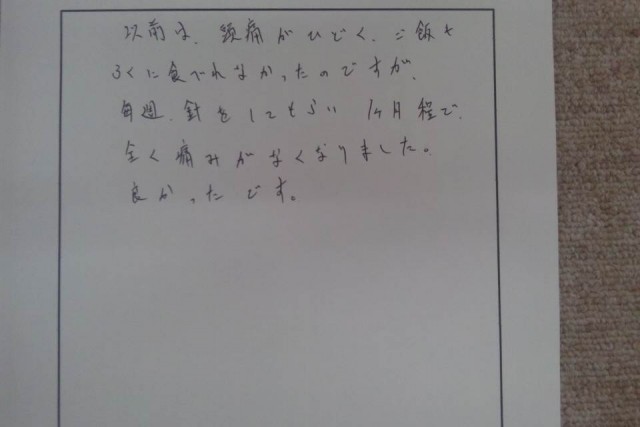 以前は、頭痛がひどく、ご飯も
ろくに食べれなかったのですが、
毎週、針をしてもらい 1ヶ月程で、
全く痛みがなくなりました。
良かったです。